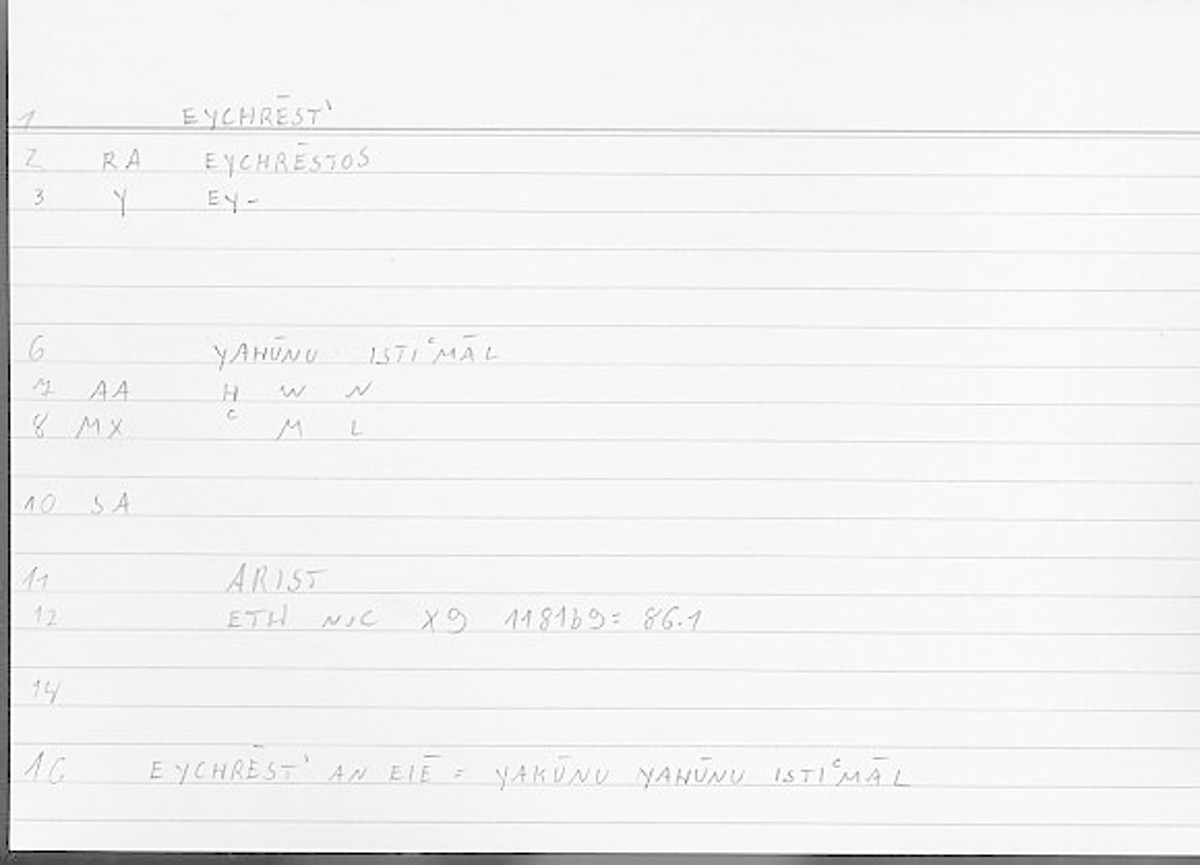 1 EYCHRĒST'
2 RA EYCHRĒSTOS
3 Y EY-
6 YAHŪNU ISTIᶜMĀL
7 AA H W N
8 MX ᶜ M L
10 SA
11 ARIST
12 ETH NIC X9 1181b9= 86.1
14
16 EYCHRĒST' AN EIĒ = YAKŪNU YAHŪNU ISTIᶜMĀL